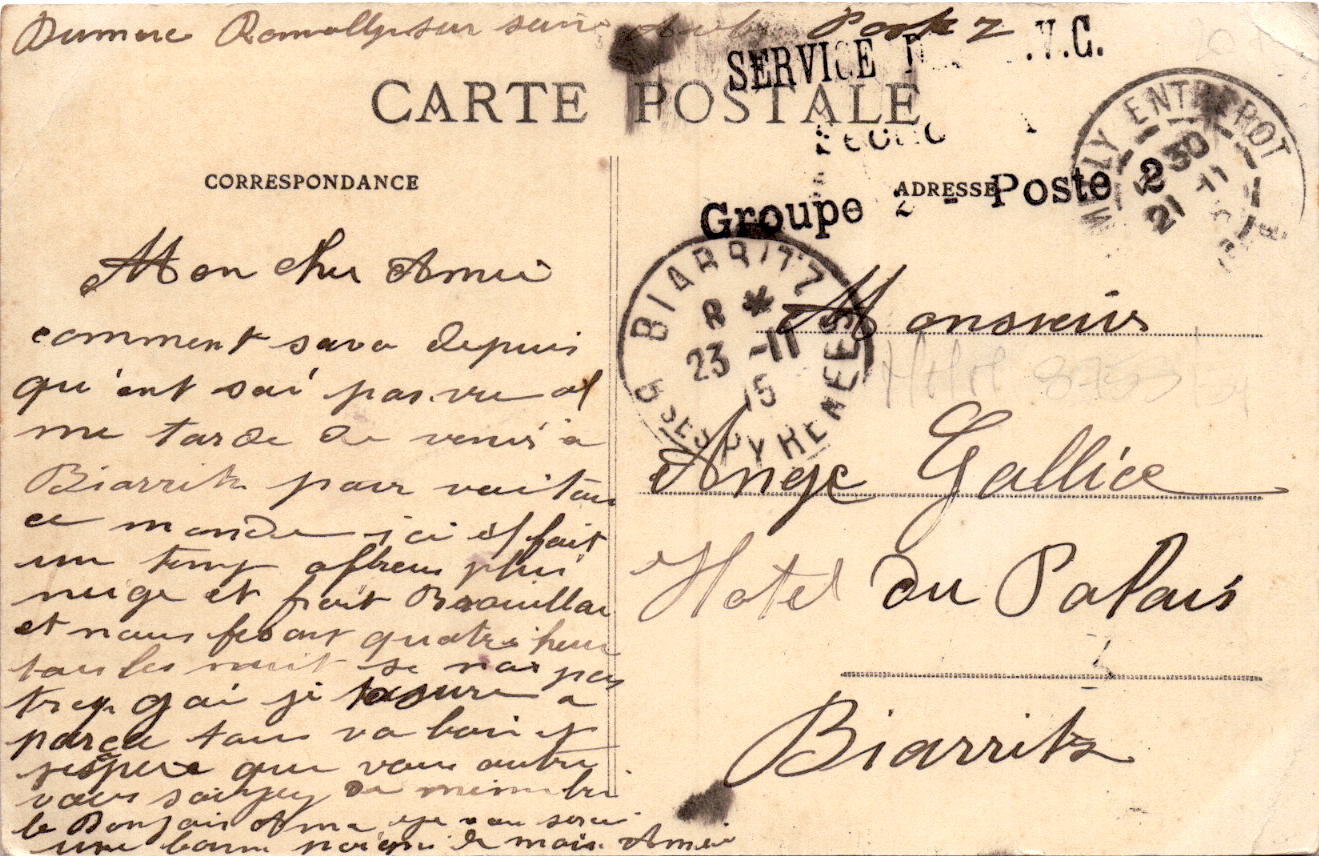 Dumec Romolly sur seine Aube Poste 2
SERVICE .V.C.
CARTE POSTALE
CORRESPONDANCE
ADRESSE
Groupe 2 - Poste 2
ENTREPOT
21 11
BIARRITZ
8 *
23 -11
15
BSES PYRENEES
Mon cher Amie
comment sava depuis
qu'ent sai pas vu al
me tarde de venir a
Biarritz pour voir tous
ce monde ici il fait
un temp affreus plui
neige et froit Brouillar
et nous fesont quatre heur
tous les nuit se nas pas
trop gai je tasure a
parça tous va bien et
jespere que vous autre
vous soiyez de meme
le Bonjour
une bonne poigne de main Amie
Monsieur
Ange Gallice
Hotel du Palais
Biarritz